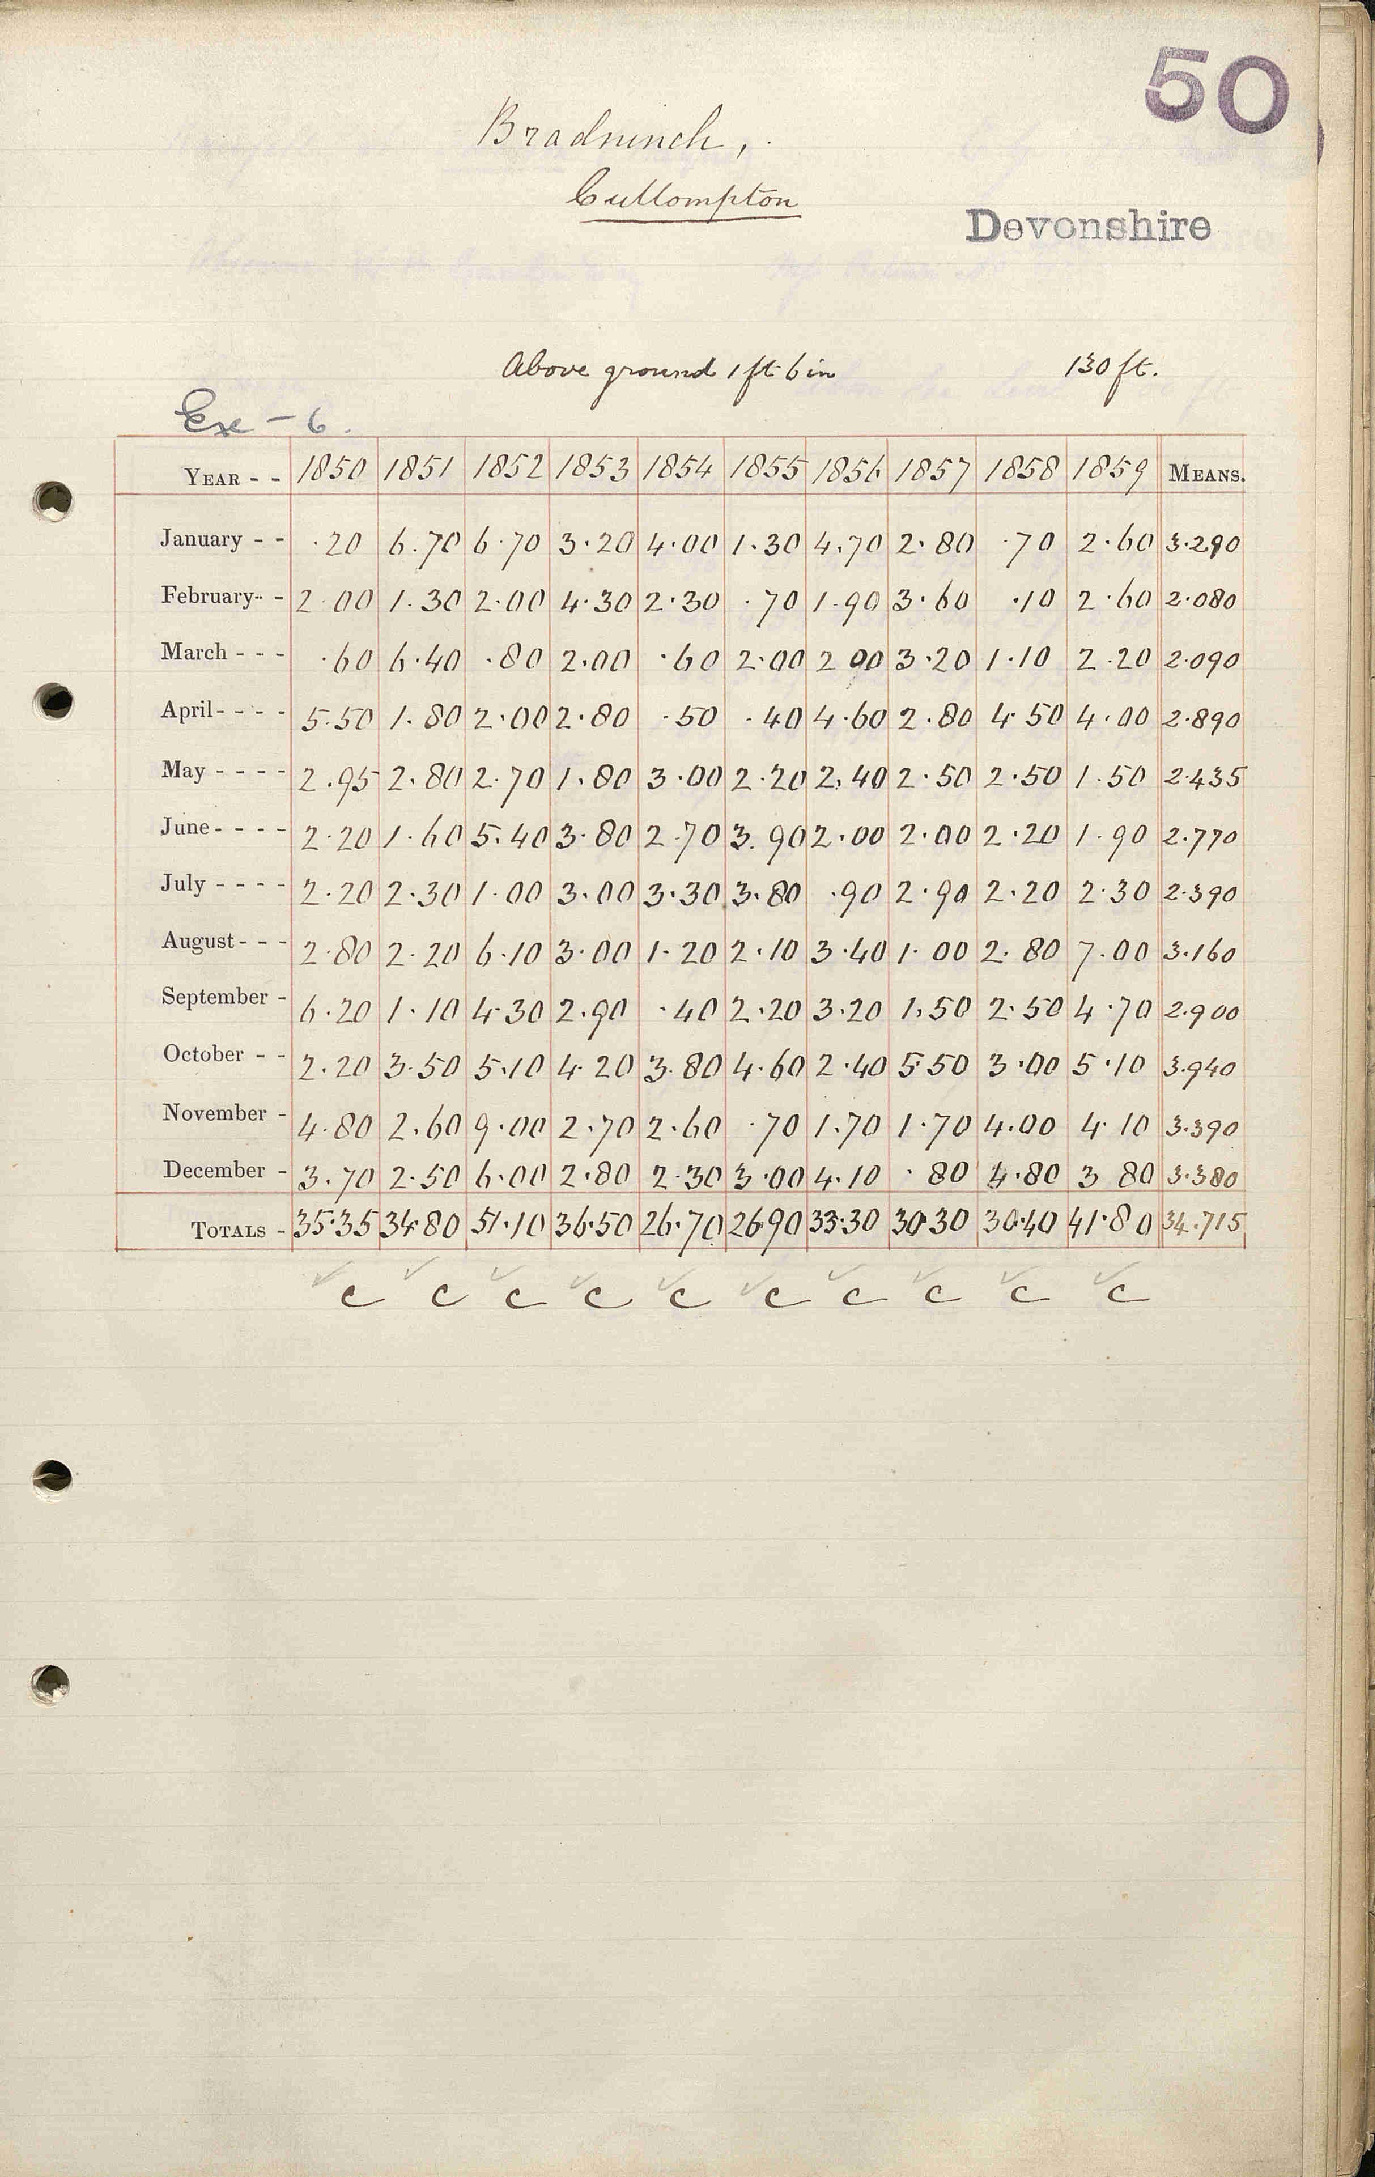 50
Bradninch,
Cullompton
Devonshire
Above ground 1 ft 6 in 130 ft.
Exe - 6.
YEAR - - 1850 1851 1852 1853 1854 1855 1856 1857 1858 1859 MEANS.
January - - ·20 6.70 6·70 3·20 4·00 1·30 4·70 2·80 ·70 2·60 3·290
February - - 2·00 1·30 2·00 4·30 2·30 ·70 1·90 3·60 ·10 2·60 2·080
March - - - ·60 6·40 ·80 2·00 ·60 2·00 2 90 3·20 1·10 2·20 2·090
April - - - - 5·50 1·80 2·00 2·80 ·50 ·40 4·60 2·80 4·50 4·00 2·890
May - - - - 2.95 2·80 2·70 1·80 3·00 2·20 2·40 2·50 2·50 1·50 2·435
June - - - - 2·20 1·60 5·40 3·80 2·70 3·90 2·00 2·00 2·20 1·90 2·770
July - - - - 2·20 2·30 1·00 3·00 3·30 3·80 ·90 2·90 2·20 2·30 2·390
August - - - 2·80 2·20 6·10 3·00 1·20 2·10 3·40 1·00 2·80 7·00 3·160
September - 6·20 1·10 4·30 2·90 ·40 2·20 3·20 1·50 2·50 4·70 2·900
October - - 2·20 3·50 5·10 4·20 3·80 4·60 2·40 5·50 3·00 5·10 3·940
November - 4·80 2·60 9·00 2·70 2·60 ·70 1·70 1·70 4·00 4·10 3·390
December - 3·70 2·50 6·00 2·80 2·30 3·00 4·10 ·80 4·80 3 80 3·380
TOTALS - 35·35 34·80 51·10 36·50 26·70 26·90 33·30 30·30 30·40 41·80 34·715
c c c c c c c c c c